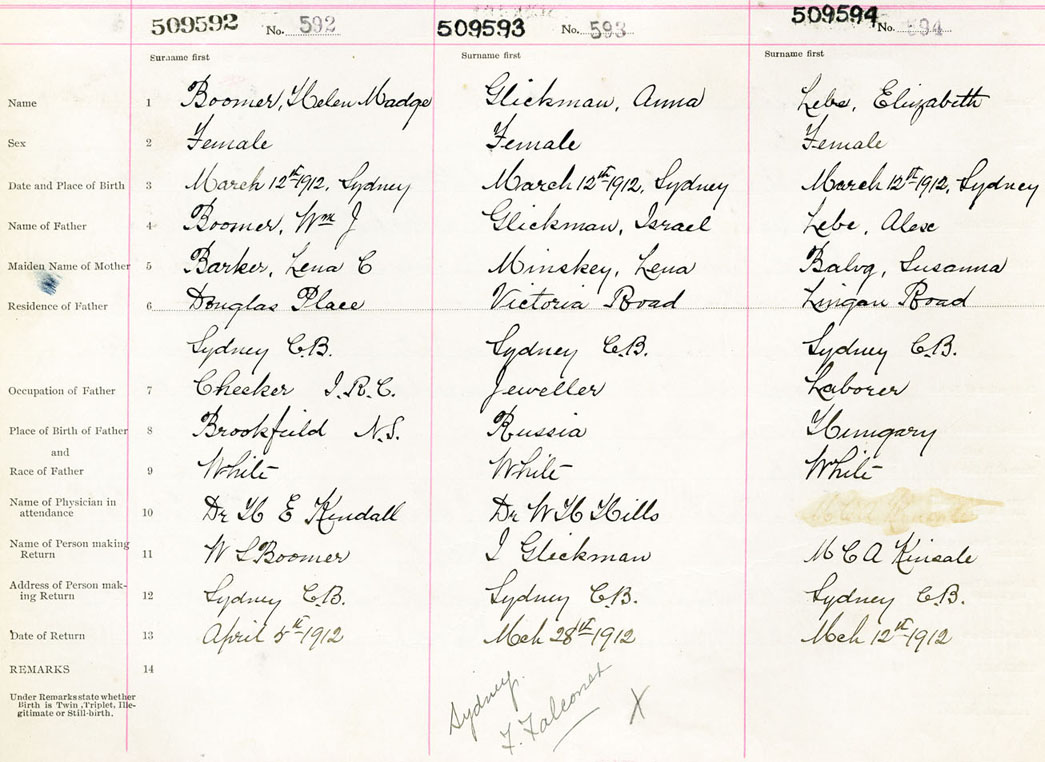 509592 No. 592 509593 No. 593 509594 No. 594
Surname first Surname first Surname first
Name 1 Boomer, Helen Madge Glickman, Anna Lebe, Elizabeth
Sex 2 Female Female Female
Date and Place of Birth 3 March 12th 1912, Sydney March 12th 1912, Sydney March 12th 1912, Sydney
Name of Father 4 Boomer, Wm J Glickman, Israel Lebe, Alex
Maiden Name of Mother 5 Barker, Lena C Minskey, Lena Susanna
Residence of Father 6 Douglas Place Victoria Road Lingan Road
Sydney C.B. Sydney C.B. Sydney C.B.
Occupation of Father 7 Checker I.R.C. Jeweller Laborer
Place of Birth of Father 8 Brookfield N.S. Russia Hungary
and
Race of Father 9 White White White
Name of Physician in
attendance 10 Dr H E Kendall Dr W H Hills
Name of Person making
Return 11 W S Boomer I Glickman M C A Kinsale
Address of Person mak-
ing Return 12 Sydney C.B. Sydney C.B. Sydney C.B.
Date of Return 13 April 5th 1912 Mch 28th 1912 Mch 12th 1912
REMARKS 14
Under Remarks state whether
Birth is Twin, Triplet, Ille-
gitimate or Still-birth.
Sydney.
F. Falconer X